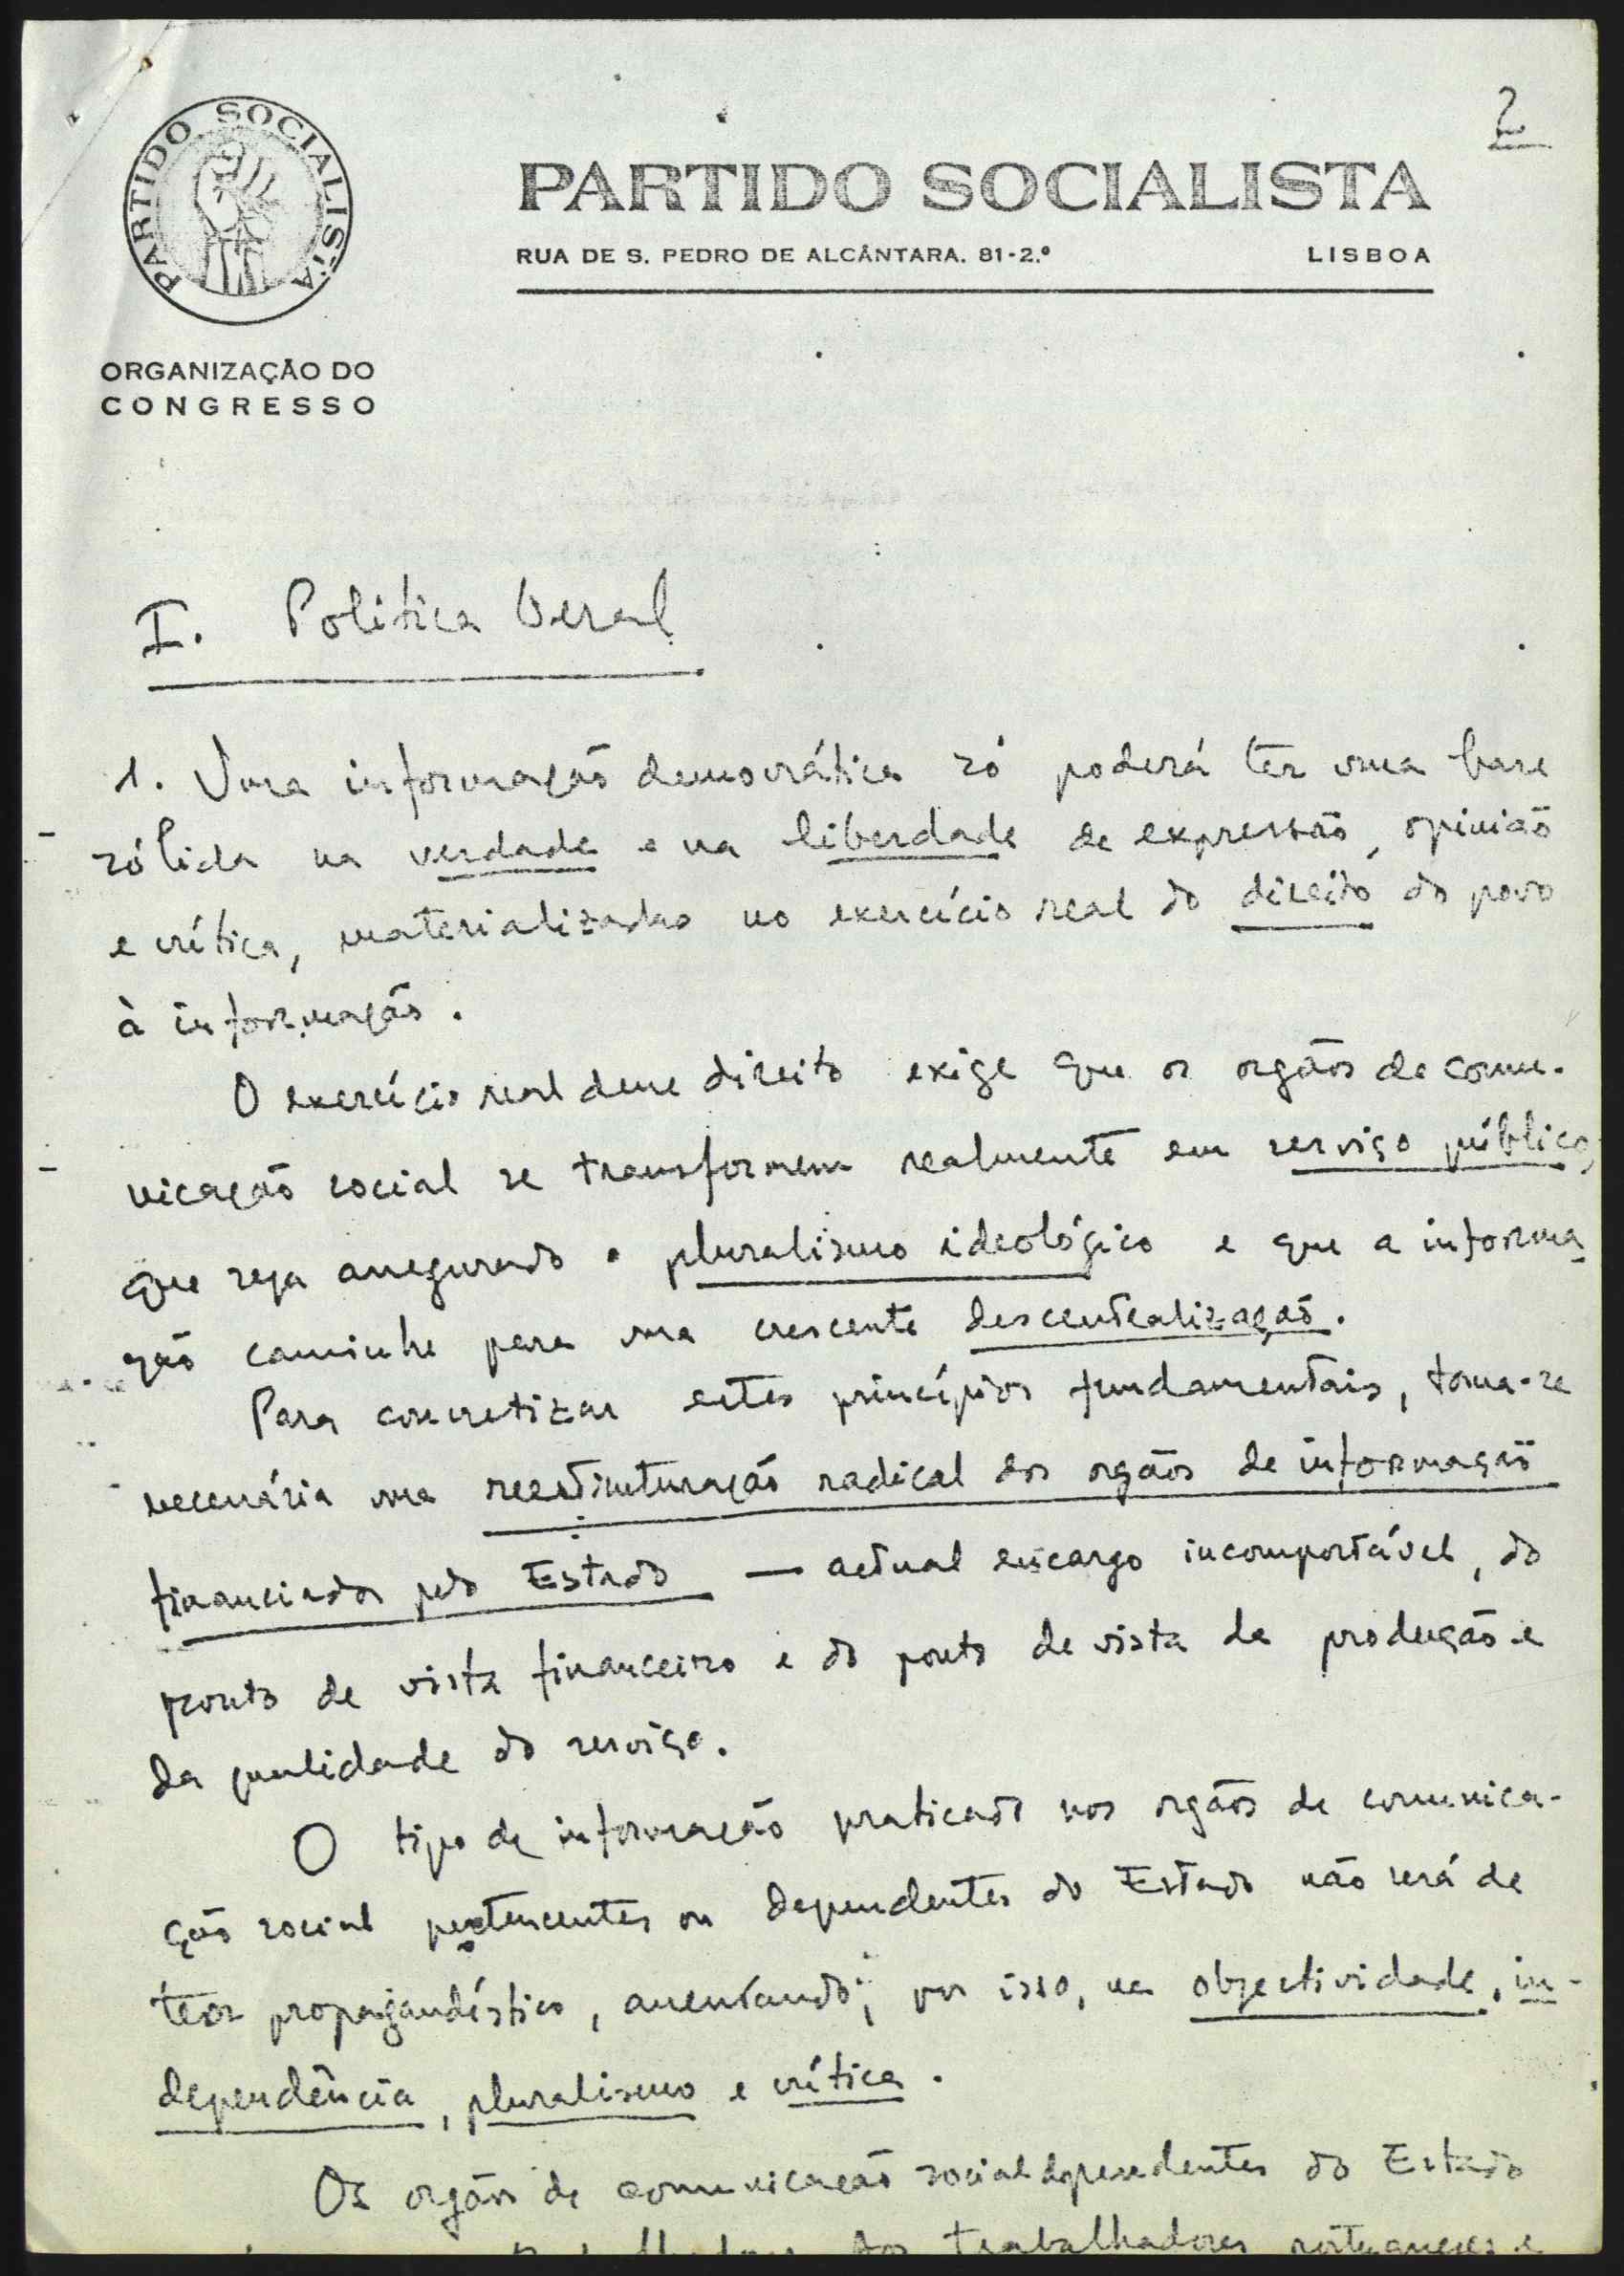 2
PARTIDO SOCIALISTA
PARTIDO SOCIALISTA
RUA DE S. PEDRO DE ALCÂNTARA. 81-2.º LISBOA
ORGANIZAÇÃO DO
CONGRESSO
I. Politica Geral
1. Uma informação democrática só poderá ter uma base
sólida na verdade e na liberdade de expressão, opinião
e crítica, materializadas no exercício real do direito do povo
à informação.
O exercício real desse direito exige que os orgãos de comu-
nicação social se transformem realmente em serviço público,
que seja assegurado o pluralismo ideológico e que a informa
ção caminhe para uma crescente descentralização.
Para concretizar estes princípios fundamentais, torna-se
necessária uma reestruturação radical dos orgãos de informação
financiados pelo Estado — actual encargo incomportável, do
ponto de vista financeiro e do ponto de vista da produção e
da qualidade do serviço.
O tipo de informação praticado nos orgãos de comunica-
ção social pertencentes ou dependentes do Estado não será de
teor propagandístico, assentando, por isso, na objectividade, in-
dependência, pluralismo e crítica.
Os orgãos de comunicação social dependentes do Estado
dos trabalhadores portugueses e